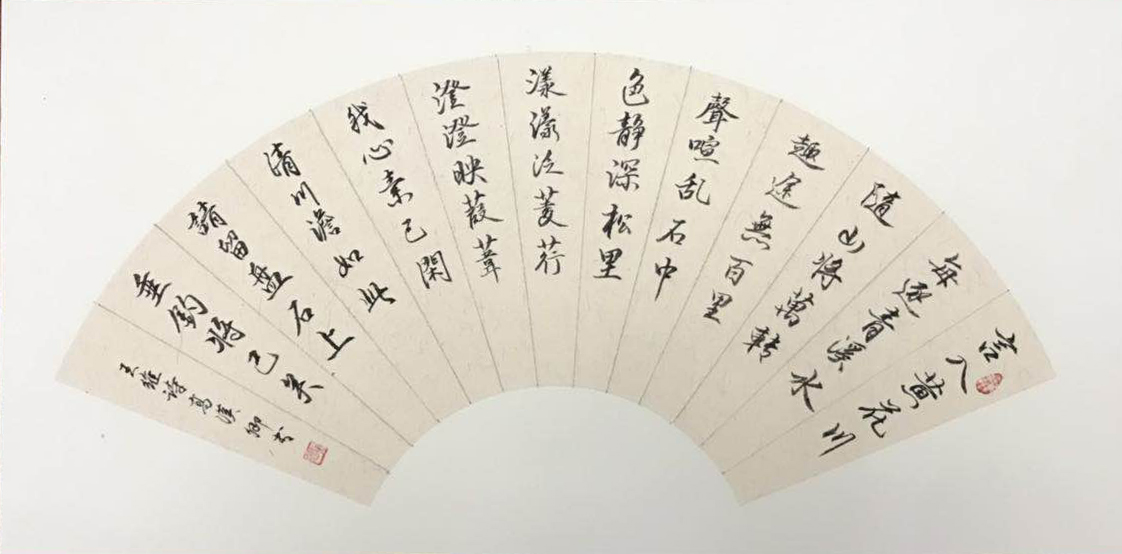 言入黄花川
每逐青溪水
隨山将萬轉
趣途無百里
聲喧乱石中
色静深松里
漾漾泛菱荇
澄澄映葭葦
我心素已閑
清川澹如此
請留盘石上
垂钓将已矣
王維詩高漢卿书